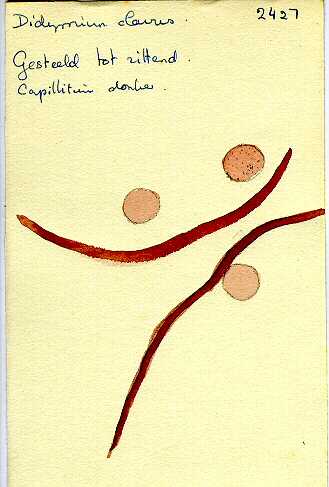 Didymium clavus. 2427
Gesteeld tot zittend.
Capillitium donker.